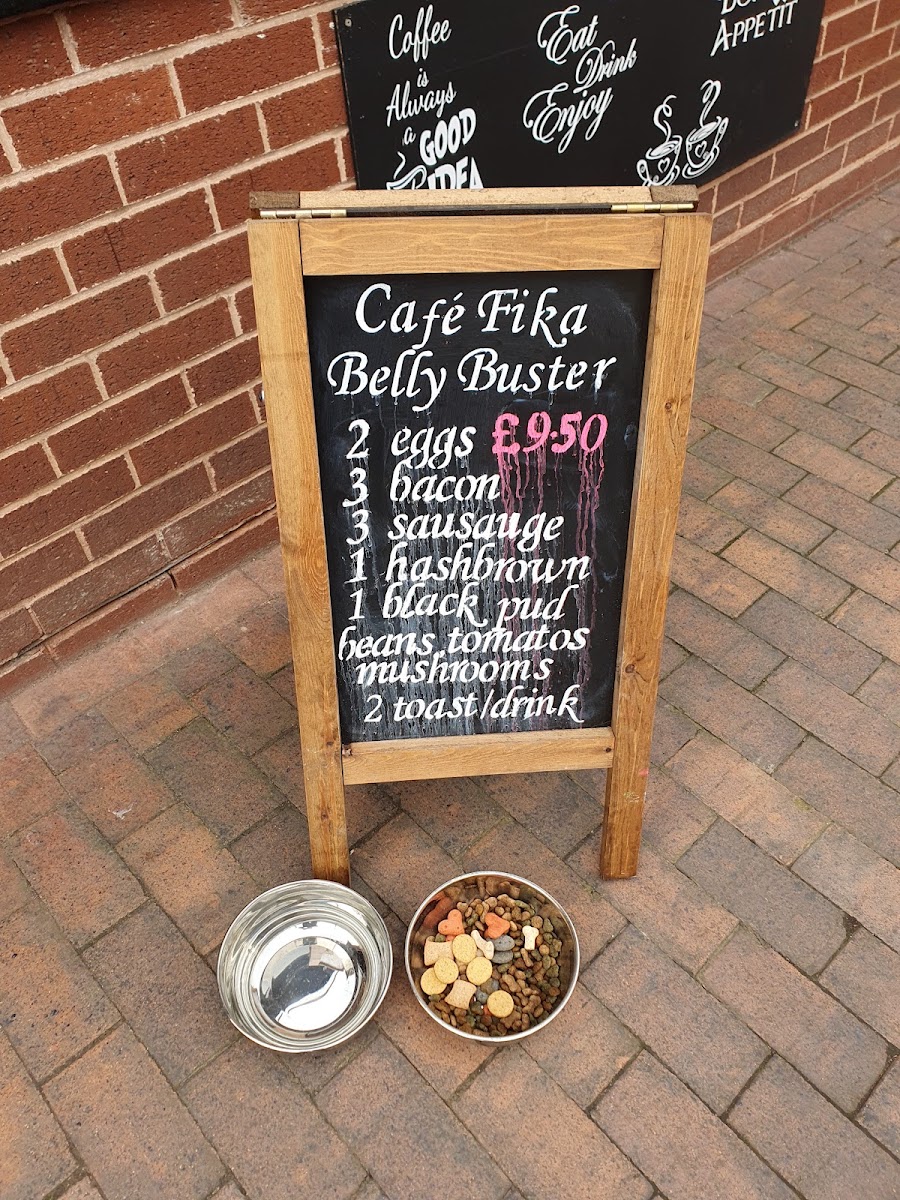 Coffee
is
Always
a GOOD
IDEA
Eat
Drink
Enjoy
APPETIT
Café Fika
Belly Buster
2 eggs £9.50
3 bacon
3 sausauge
1 hashbrown
1 black pud
beans, tomatos
mushrooms
2 toast/drink